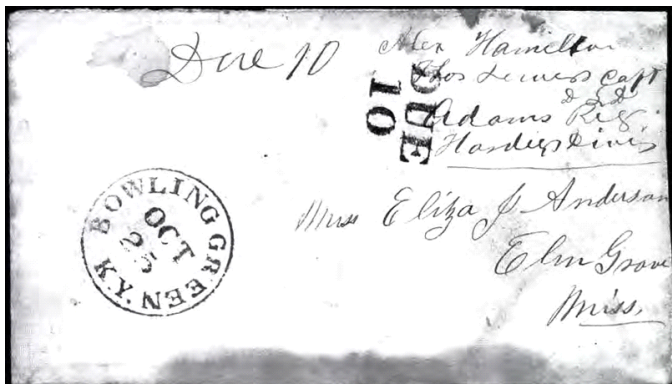 Due 10
Alex Hamilton
Capt
DUE
10
Adams Reg.
Hardies Divis
BOWLING GREEN. K.Y.
OCT
25
Miss Eliza J Anderson
Elm Grove
Miss.